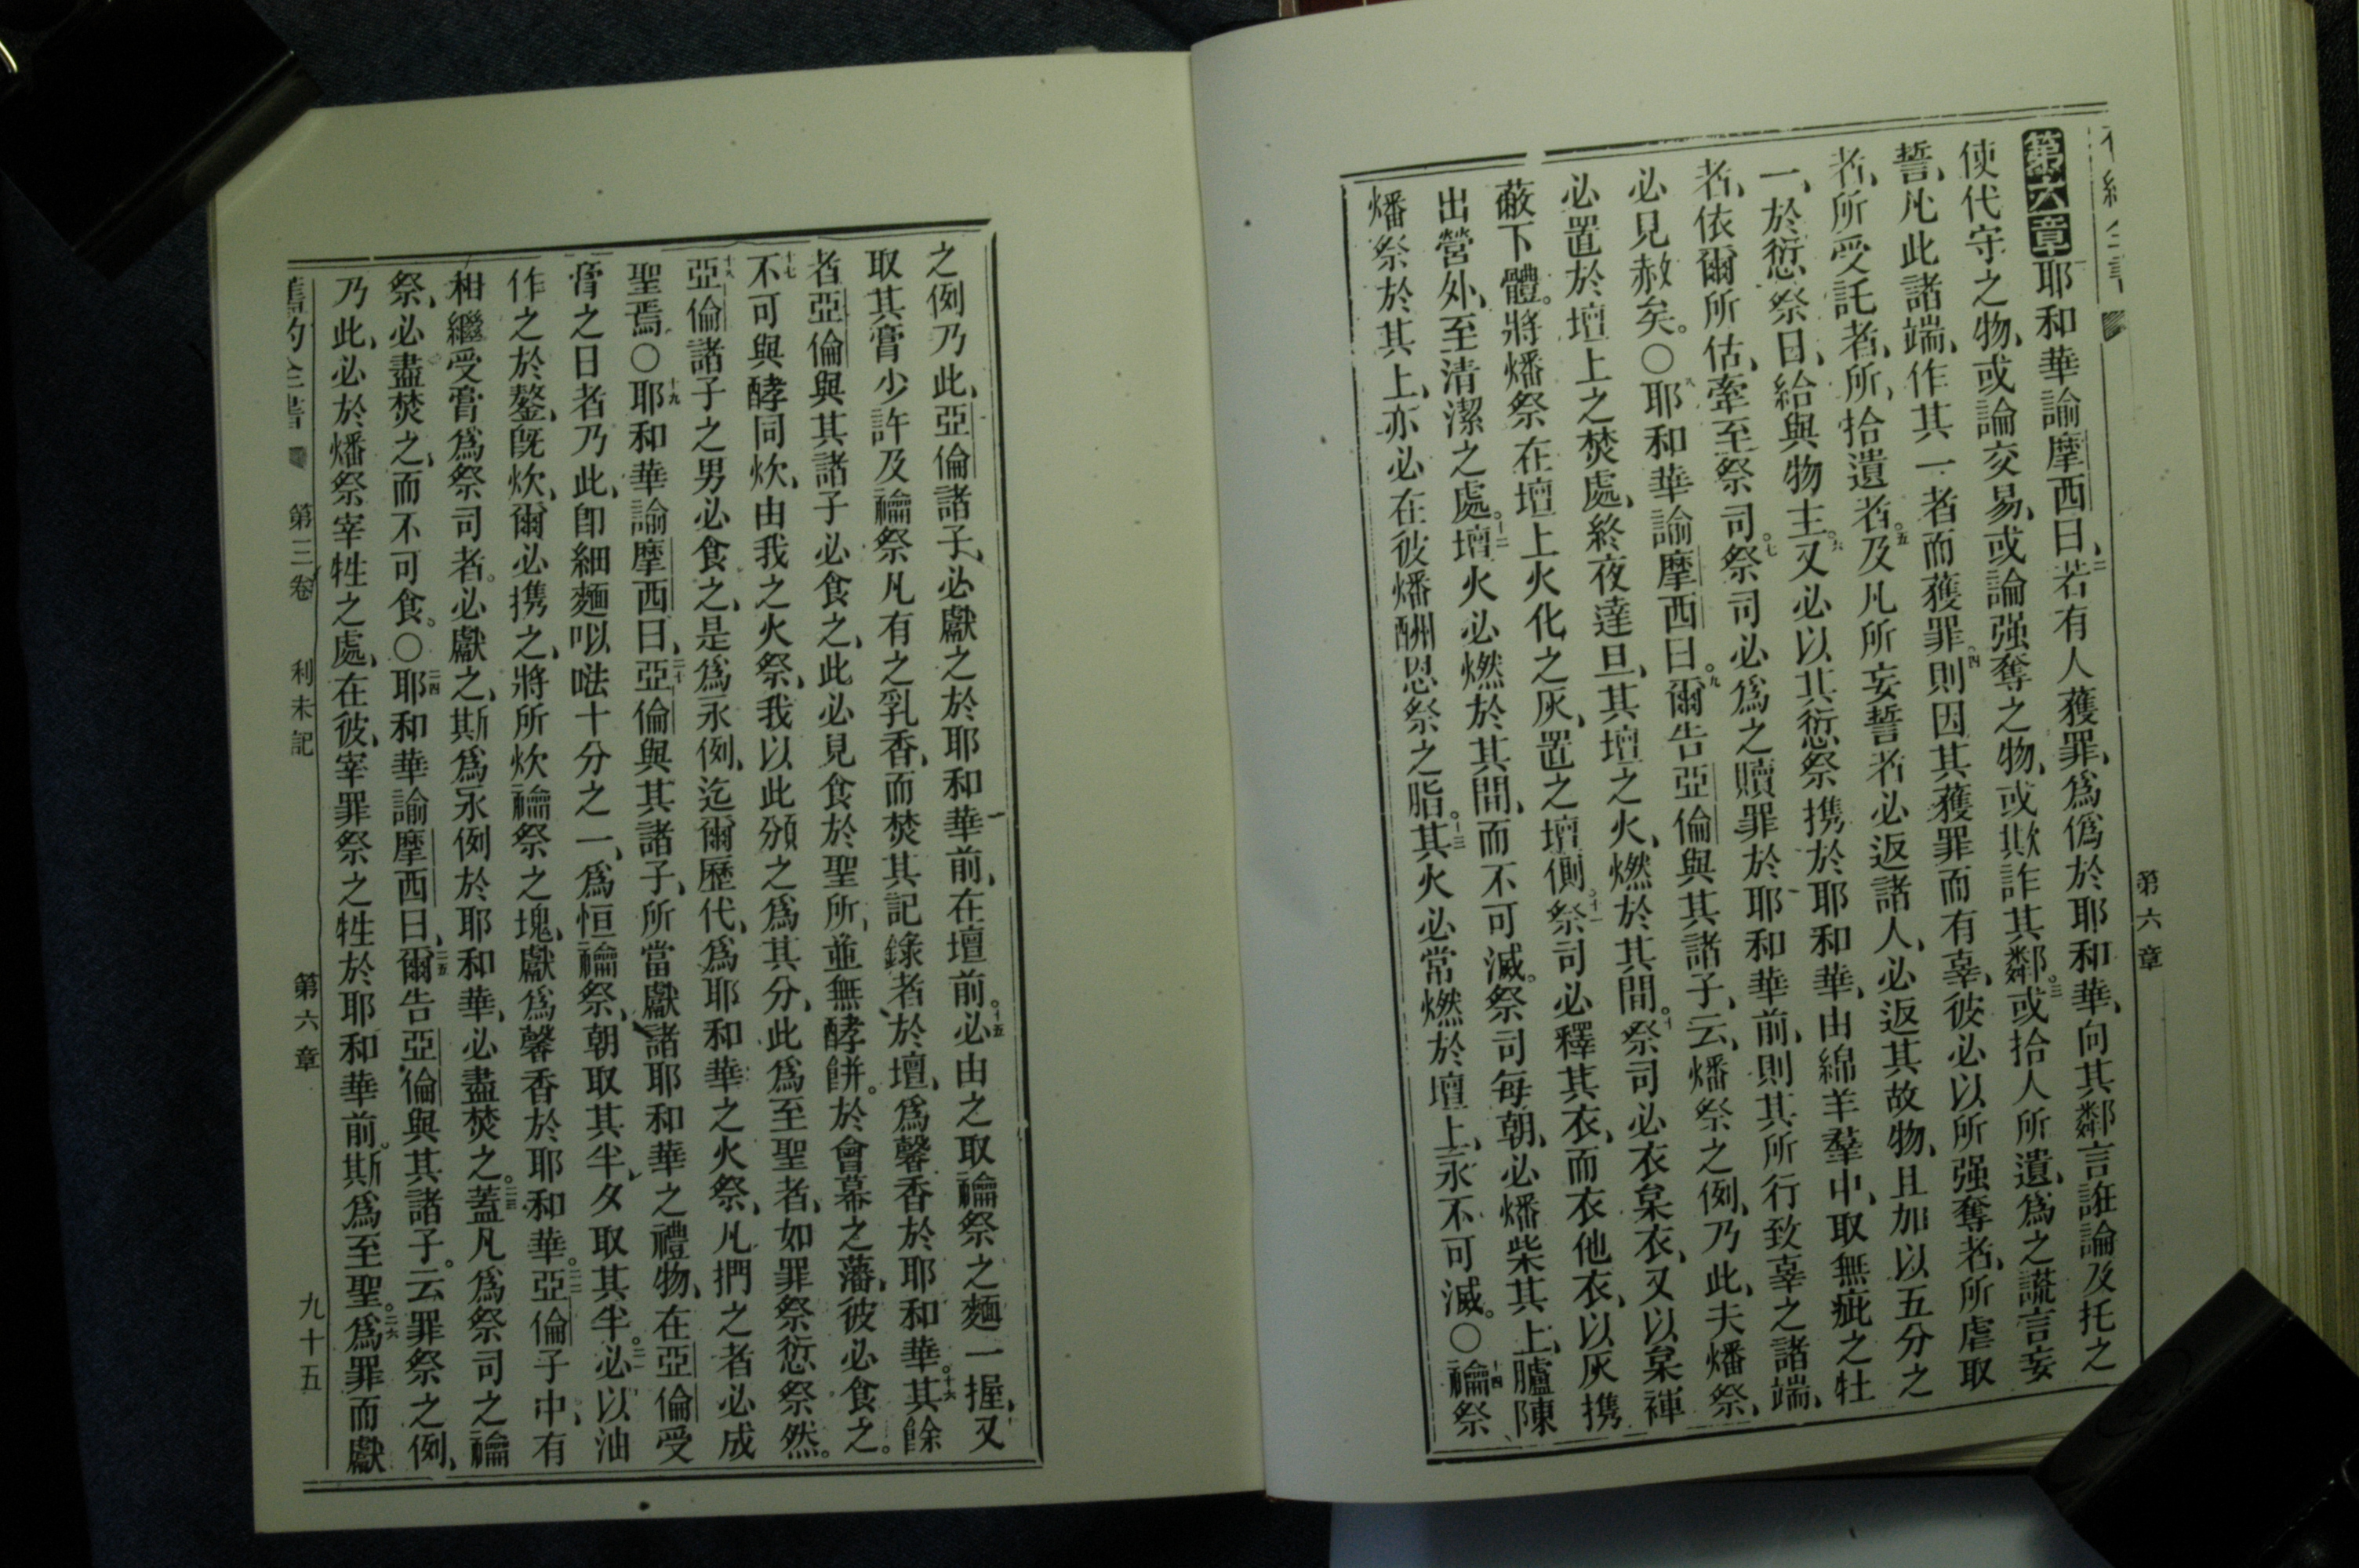 第六章
第六章耶和華諭摩西曰、二若有人獲罪、爲僞於耶和華、向其鄰言誑論及托之
使代守之物、或論交易、或論强奪之物、或欺詐其鄰。三或拾人所遺、爲之謊言妄
誓、凡此諸端、作其一者而獲罪、四則因其獲罪而有辜、彼必以所强奪者、所虐取
者、所受託者、所拾遺者。五及凡所妄誓者必返諸人、必返其故物、且加以五分之
一、於愆祭日、給與物主。六又必以其愆祭携於耶和華、由綿羊羣中、取無疵之牡
者、依爾所估、牽至祭司。七祭司必爲之贖罪於耶和華前、則其所行致辜之諸端、
必見赦矣。〇八耶和華諭摩西曰。九爾告亞倫與其諸子、云、燔祭之例、乃此、夫燔祭、
必置於壇上之焚處、終夜達旦、其壇之火、燃於其間。十祭司必衣枲衣、又以枲褌
蔽下體。將燔祭在壇上火化之灰、置之壇側。十一祭司必釋其衣、而衣他衣、以灰携
出營外、至清潔之處。十二壇火必燃於其間、而不可滅。祭司每朝、必燔柴其上、臚陳
燔祭於其上、亦必在彼燔酬恩祭之脂。十三其火必常燃於壇上、永不可滅。〇十四禴祭
之例乃此、亞倫諸子、必獻之於耶和華前、在壇前。十五必由之取禴祭之麵一握、又
取其膏少許及禴祭凡有之乳香、而焚其記錄者、於壇、爲馨香於耶和華。十六其餘
者亞倫與其諸子必食之、此必見食於聖所、並無酵餅。於會幕之藩、彼必食之。
十七不可與酵同炊、由我之火祭、我以此頒之爲其分、此爲至聖者、如罪祭愆祭然。
十八亞倫諸子之男必食之、是爲永例、迄爾歷代、爲耶和華之火祭、凡捫之者必成
聖焉。〇十九耶和華諭摩西曰、二十亞倫與其諸子、所當獻諸耶和華之禮物、在亞倫受
膏之日者乃此、卽細麵㕥㗶十分之一、爲恒禴祭、朝取其半夕取其半。二一必以油
作之於鏊、旣炊、爾必携之、將所炊禴祭之塊、獻爲馨香於耶和華。二二亞倫子中、有
相繼受膏爲祭司者。必獻之、斯爲永例於耶和華、必盡焚之。二三蓋凡爲祭司之禴
祭、必盡焚之、而不可食。〇二四耶和華諭摩西曰、二五爾告亞倫與其諸子。云罪祭之例、
乃此、必於燔祭宰牲之處、在彼、宰罪祭之牲於耶和華前。斯爲至聖。二六爲罪而獻
舊約全書 第三卷 利未記 第六章 九十五